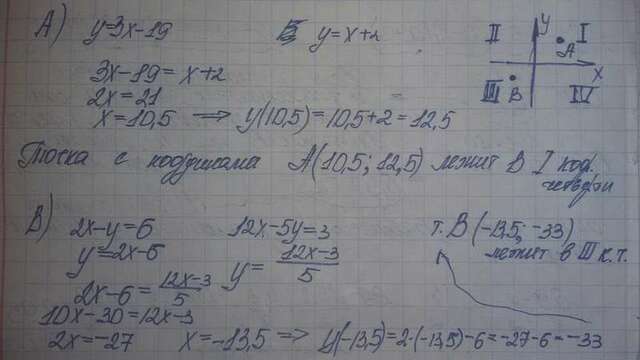 А) y=3x-19 y=x+2
3x-19=x+2
2x=21
x=10,5 ⟹ y(10,5)=10,5+2=12,5
II y I
A
x
III B IV
Точка с координатами A(10,5; 12,5) лежит в I коорд.
четверти
B) 2x-y=6 12x-5y=3 т. B (-13,5; -33)
y=2x-6 y=12x-3/5 лежит в III к.т.
2x-6=12x-3/5
10x-30=12x-3
2x=-27 x=-13,5 ⟹ y(-13,5)=2·(-13,5)-6=-27-6=-33